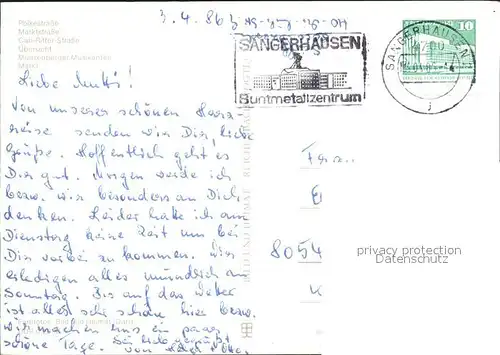 Pölkenstraße
Marktstraße
Carl-Ritter-Straße
Übersicht
Münzenberger Musikanten
Markt
3.4.86
SANGERHAUSEN
Buntmetallzentrum
SANGERHAUSEN 1
j
10
Liebe Mutti!
Von unserer schönen Harz-
reise senden wir Dir liebe
Grüße. Hoffentlich geht es
Dir gut. Morgen werde ich
bzw. wir besonders an Dich
denken. Leider hatte ich am
Dienstag keine Zeit um bei
Dir vorbei zu kommen. Wir
erledigen alles mündlich am
Sonntag. Bis auf das Wetter
ist alles sehr schön hier bzw.
wir machen uns ein paar
schöne Tage. Sei lieb gegrüßt
von
Frau
8054
K
privacy protection
Datenschutz